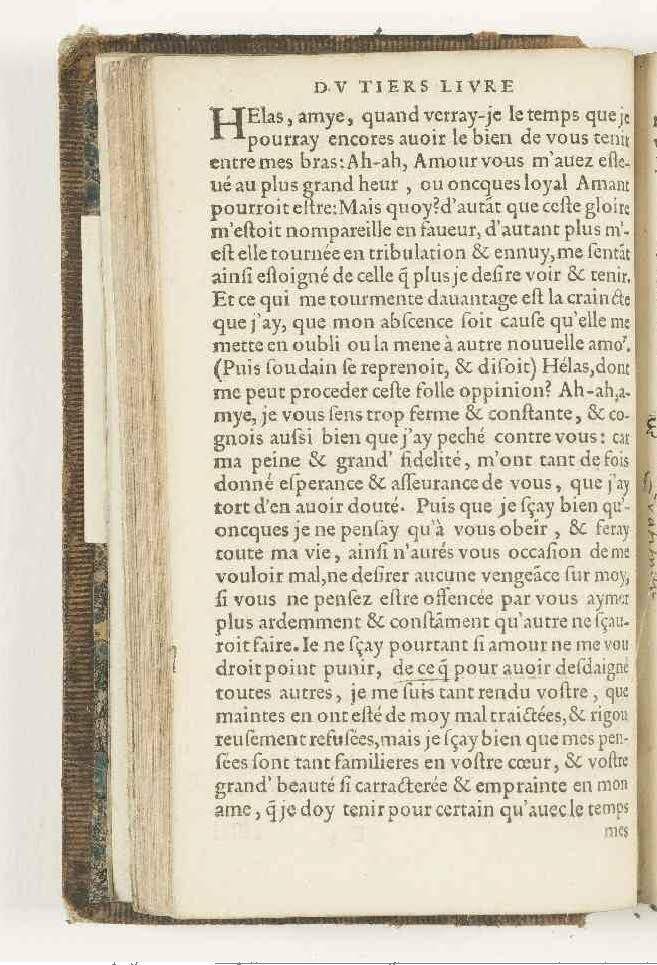 D·V TIERS LIVRE
HElas, amye, quand verray-je le temps que je
pourray encores auoir le bien de vous tenir
entre mes bras: Ah-ah, Amour vous m'auez eſle-
ué au plus grand heur, ou oncques loyal Amant
pourroit eſtre: Mais quoy? d'autãt que ceſte gloire
m'eſtoit nompareille en faueur, d'autant plus m'-
eſt elle tournée en tribulation & ennuy, me ſentãt
ainſi eſloigné de celle q̃ plus je deſire voir & tenir.
Et ce qui me tourmente dauantage eſt la craincte
que j'ay, que mon abſcence ſoit cauſe qu'elle me
mette en oubli ou la mene à autre nouuelle amoʳ.
(Puis ſoudain ſe reprenoit, & diſoit) Hélas, dont
me peut proceder ceſte folle oppinion? Ah-ah, a-
mye, je vous ſens trop ferme & conſtante, & co-
gnois auſsi bien que j'ay peché contre vous: car
ma peine & grand' fidelité, m'ont tant de fois
donné eſperance & aſſeurance de vous, que j'ay
tort d'en auoir douté. Puis que je ſçay bien qu'-
oncques je ne penſay qu'à vous obeir, & feray
toute ma vie, ainſi n'aurés vous occaſion de me
vouloir mal, ne deſirer aucune vengeãce ſur moy,
ſi vous ne penſez eſtre offencée par vous aymer
plus ardemment & conſtãment qu'autre ne ſçau-
roit faire. Ie ne ſçay pourtant ſi amour ne me vou
droit point punir, de ce q̃ pour auoir deſdaigné
toutes autres, je me ſuis tant rendu voſtre, que
maintes en ont eſté de moy mal traictées, & rigou
reuſement refuſées, mais je ſçay bien que mes pen-
ſées ſont tant familieres en voſtre cœur, & voſtre
grand' beauté ſi carracterée & emprainte en mon
ame, q̃ je doy tenir pour certain qu'auec le temps
mes